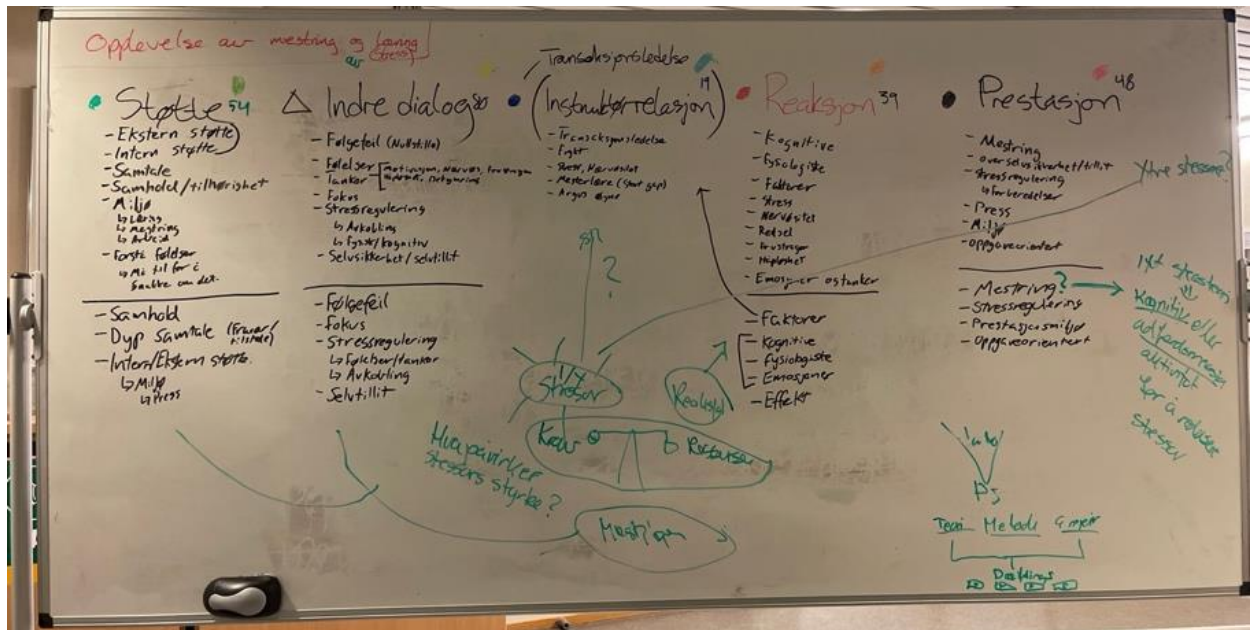 Opplevelse av mestring og læring
av stress
Støtte 54
- Ekstern støtte
- Intern støtte
- Samtale
- Samhold/tilhørighet
- Miljø
↳ Læring
↳ Mestring
↳ Arbeid
- Forstå følelser
↳ Må til for å
snakke om det.
- Samhold
- Dyp samtale (Fravær/
tilstede)
- Intern/Ekstern støtte.
↳ Miljø
↳ Press
Indre dialog 80
- Følgefeil (Nullstille)
- Følelser
Tanker
- Fokus
- Stressregulering
↳ Avkobling
↳ Fysisk/kognitiv
- Selvsikkerhet/selvtillit
- Følgefeil
- Fokus
- Stressregulering
↳ Følelser/tanker
↳ Avkobling
- Selvtillit
Transaksjonsledelse
(Instruktørrelasjon) 19
- Transaksjonsledelse
- Frykt
- Stress, Nervøsitet
- Mesterlære (stort gap)
- Argus øyne
Reaksjon 39
- Kognitive
- Fysiologiske
- Faktorer
- Stress
- Nervøsitet
- Redsel
- Frustrasjon
- Håpløshet
- Emosjoner og tanker
- Faktorer
- Kognitive
- Fysiologiske
- Emosjoner
- Effekt
Prestasjon 48
- Mestring
- Overselvsikkerhet/tillit
- Stressregulering
↳ Forberedelser
- Press
- Miljø
- Oppgaveorientert
- Mestring?
- Stressregulering
- Prestasjonsmiljø
- Oppgaveorientert
Ytre stressor?
Kognitiv eller
adferdsmessig
aktivitet
for å redusere
stressor
?
I/Y
Stressor
Reaksjon
Krav
Ressurser
Hva påvirker
stressors styrke?
Mestringen
Teori Metode Empiri
Drøftings